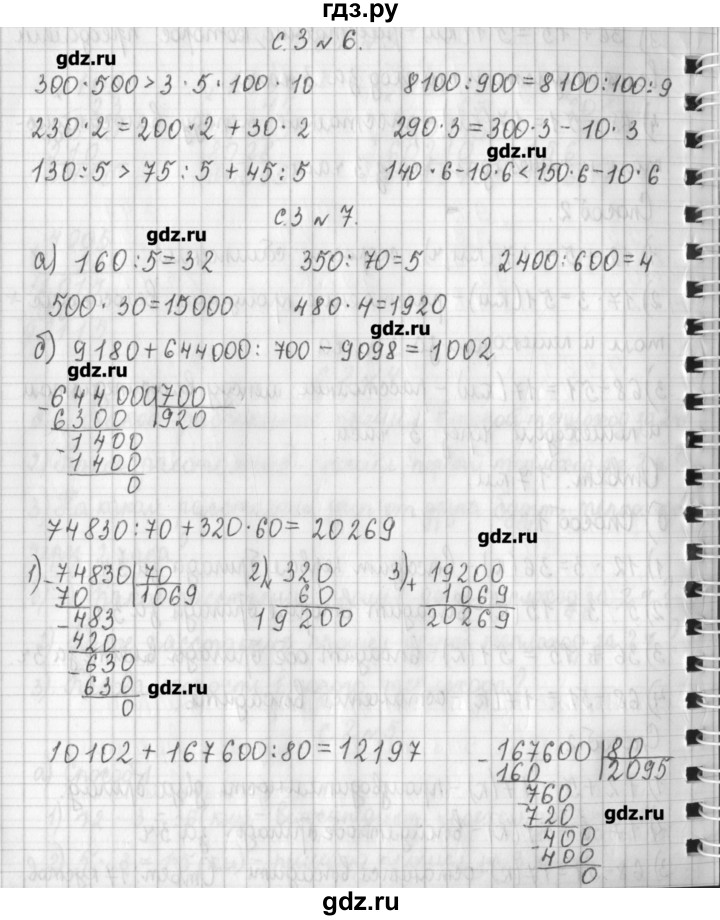 гдз.ру
с.3 № 6.
gdz.ru
300·500 > 3·5·100·10 8100:900=8100:100:9
230·2=200·2+30·2 290·3=300·3-10·3
gdz.ru
130:5 > 75:5+45:5 140·6-10·6<150·6-10·6
с.3 № 7.
gdz.ru
а) 160:5=32 350:70=5 2400:600=4
500·30=15000 480·4=1920
gdz.ru
б) 9180+644000:700-9098=1002
gdz.ru
- 644000 700
6300 920
- 1400
1400
0
74830:70+320·60=20269
gdz.ru
1) - 74830 70 2) × 320 3) + 19200
70 1069 60 1069
- 483 19200 20269
420
- 630
630
gdz.ru
0
10102+167600:80=12197 - 167600 80
160 2095
- 760
720
gdz.ru
- 400
400
0
gdz.ru